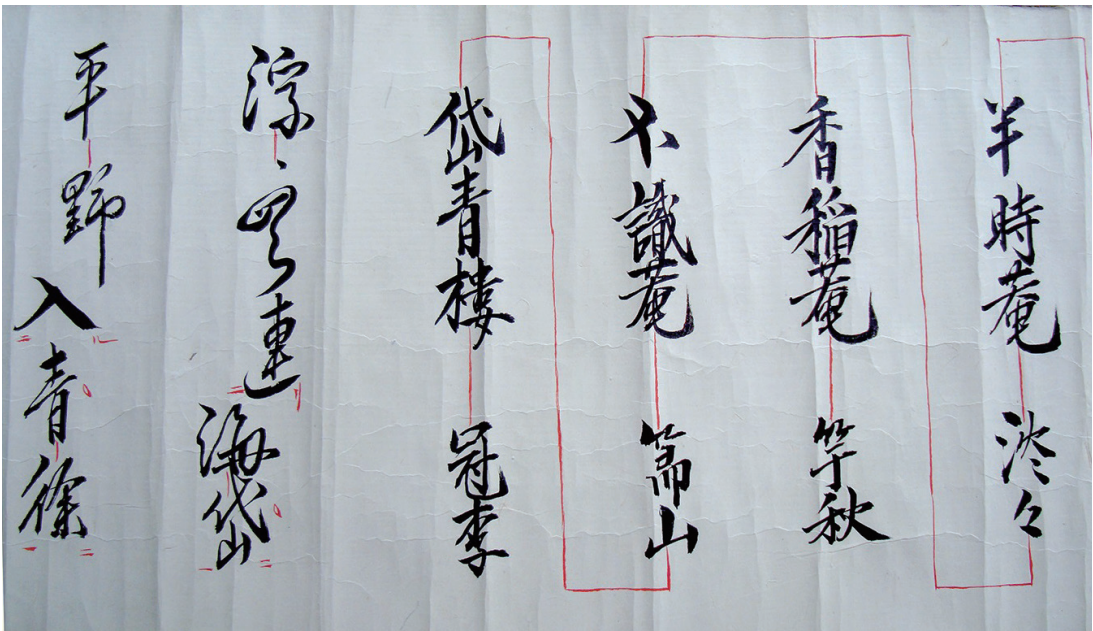 半時菴 淡々
香稲菴 竿秋
不識菴 篙山
岱青樓 冠李
浮雲連海岱
平野入青徐